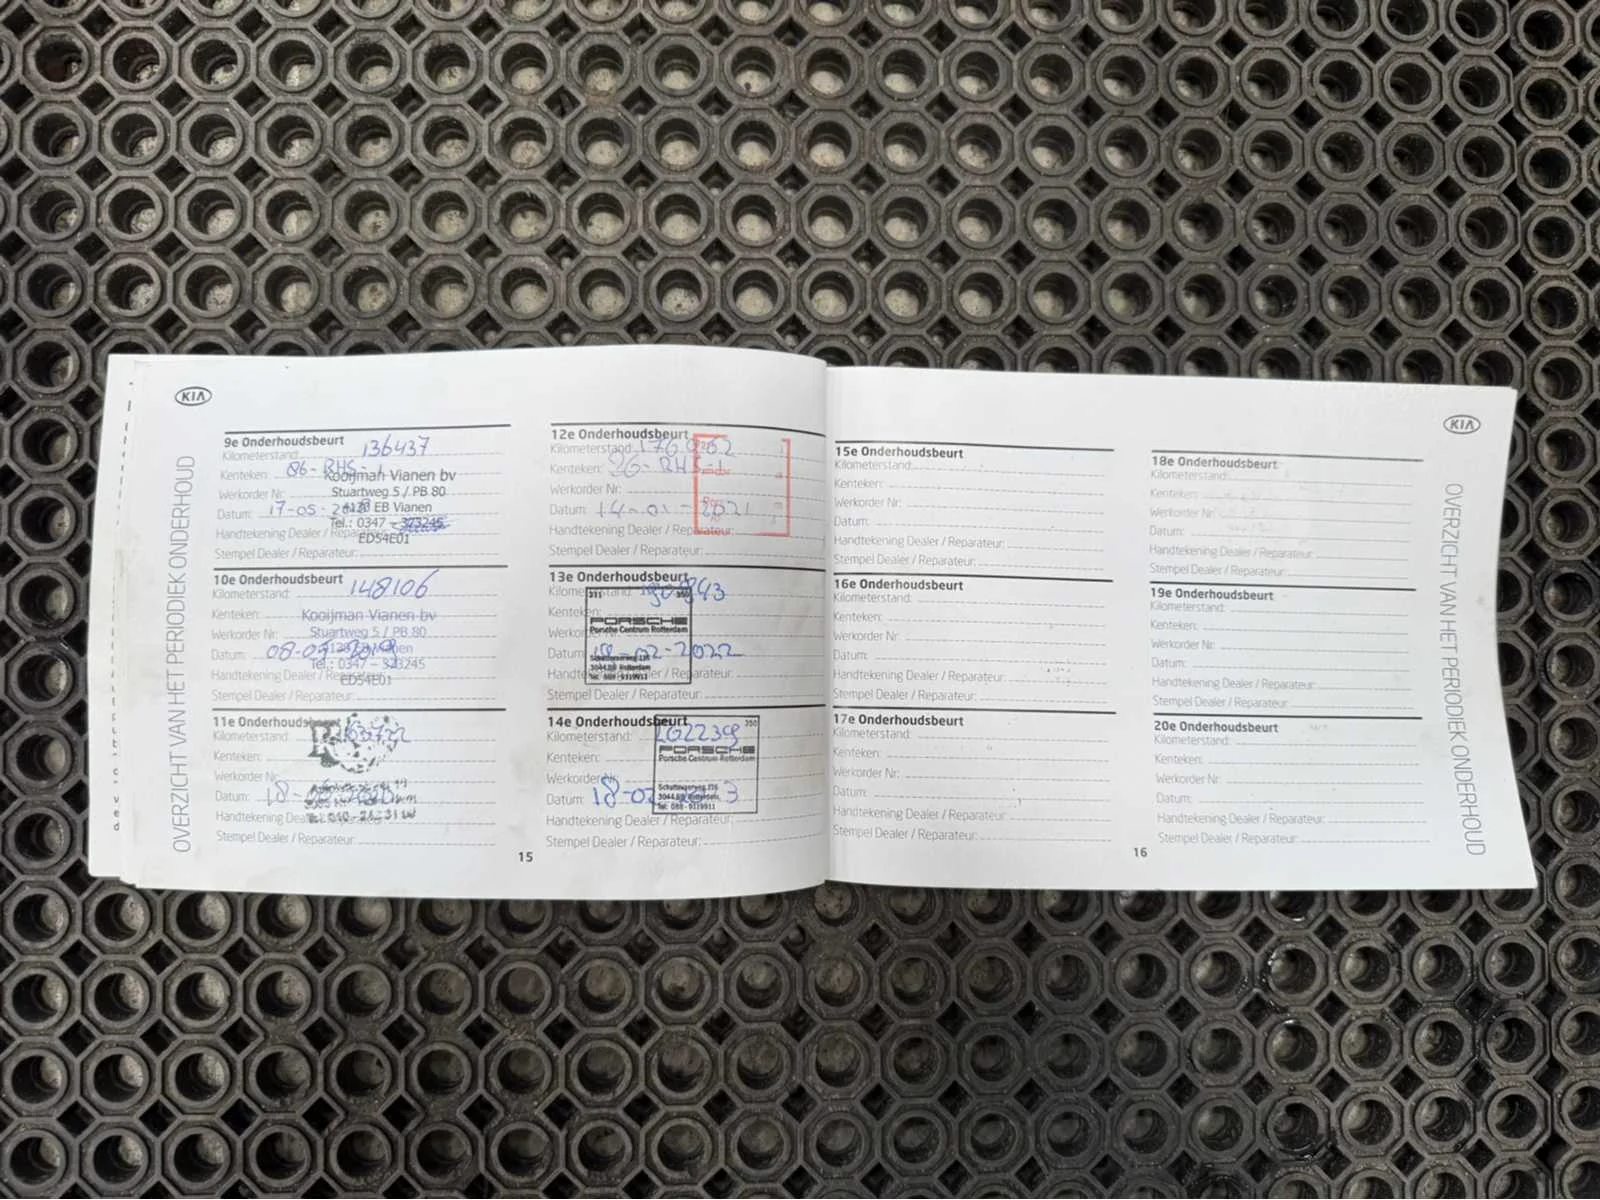 KIA
OVERZICHT VAN HET PERIODIEK ONDERHOUD
9e Onderhoudsbeurt
Kilometerstand: 136437
Kenteken: 86-RHS-1
Kooijman Vianen bv
Werkorder Nr:
Stuartweg 5 / PB 80
Datum: 17-05-
4130 EB Vianen
Tel.: 0347 - 373245
Handtekening Dealer / Reparateur:
ED54E01
Stempel Dealer / Reparateur:
10e Onderhoudsbeurt
Kilometerstand: 148106
Kenteken:
Kooijman Vianen bv
Werkorder Nr:
Stuartweg 5 / PB 80
Datum:
Vianen
Tel.: 0347 - 323245
Handtekening Dealer / Reparateur:
ED54E01
Stempel Dealer / Reparateur:
11e Onderhoudsbeurt
Kilometerstand:
Kenteken:
Werkorder Nr:
Datum: 18-
Handtekening Dealer / Reparateur:
Stempel Dealer / Reparateur:
12e Onderhoudsbeurt
Kilometerstand:
Kenteken:
Werkorder Nr:
Datum: 14-01-2021
Handtekening Dealer / Reparateur:
Stempel Dealer / Reparateur:
13e Onderhoudsbeurt
Kilometerstand:
Kenteken:
PORSCHE
Porsche Centrum Rotterdam
Werkorder
Datum: 18-02-2022
3044 BB Rotterdam
Tel: 088 - 9119911
Stempel Dealer / Reparateur:
14e Onderhoudsbeurt
Kilometerstand: 202239
350
Kenteken:
PORSCHE
Porsche Centrum Rotterdam
Werkorder Nr:
Datum: 18-02
3044 BB Rotterdam
Tel: 088 - 9119911
Handtekening Dealer / Reparateur:
Stempel Dealer / Reparateur:
15
15e Onderhoudsbeurt
Kilometerstand:
Kenteken:
Werkorder Nr:
Datum:
Handtekening Dealer / Reparateur:
Stempel Dealer / Reparateur:
16e Onderhoudsbeurt
Kilometerstand:
Kenteken:
Werkorder Nr:
Datum:
Handtekening Dealer / Reparateur:
Stempel Dealer / Reparateur:
17e Onderhoudsbeurt
Kilometerstand:
Kenteken:
Werkorder Nr:
Datum:
Handtekening Dealer / Reparateur:
Stempel Dealer / Reparateur:
18e Onderhoudsbeurt
Kilometerstand:
Kenteken:
Werkorder Nr:
Datum:
Handtekening Dealer / Reparateur:
Stempel Dealer / Reparateur:
19e Onderhoudsbeurt
Kilometerstand:
Kenteken:
Werkorder Nr:
Datum:
Handtekening Dealer / Reparateur:
Stempel Dealer / Reparateur:
20e Onderhoudsbeurt
Kilometerstand:
Kenteken:
Werkorder Nr:
Datum:
Handtekening Dealer / Reparateur:
Stempel Dealer / Reparateur:
16
KIA
OVERZICHT VAN HET PERIODIEK ONDERHOUD